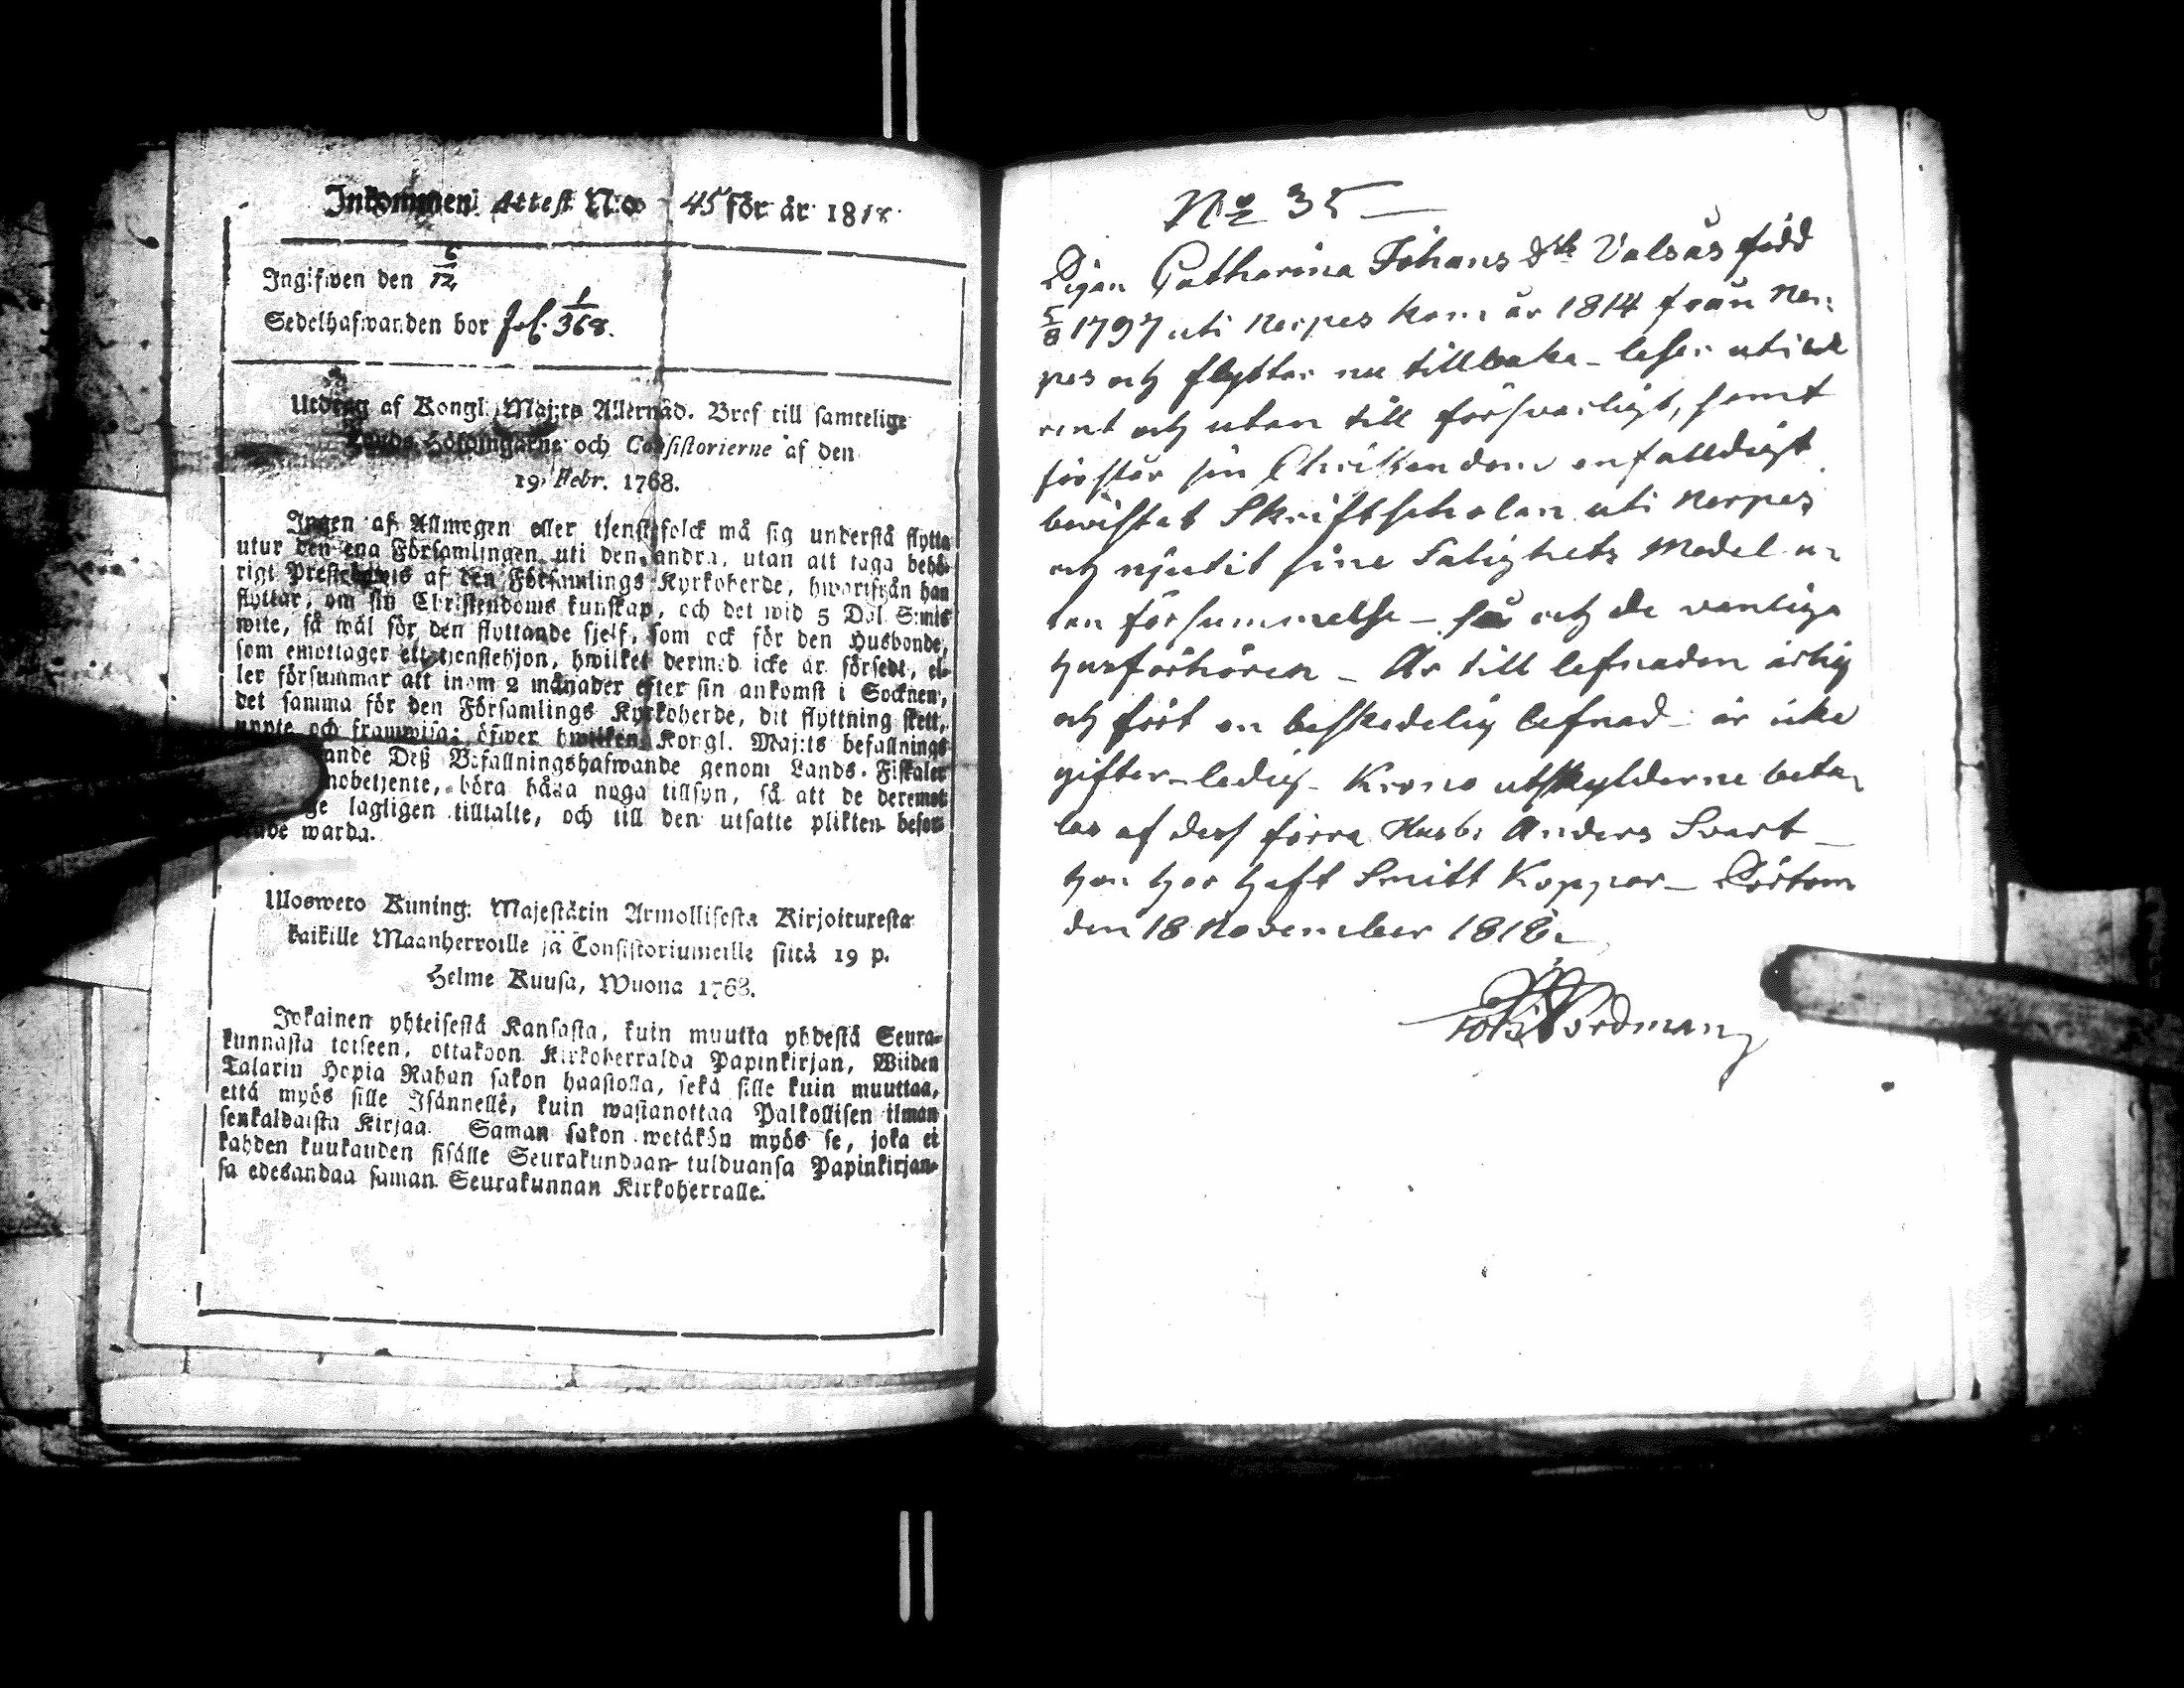 Inkommen attest N:o 45 för år 1818.
Ingifwen den 6/12
Sedelhafwanden bor Jol. 1/368.
Utdrag af Kongl. Maj:ts Allernåd. Bref till samtelige
Höfdingarne och Consistorierne af den
19 Febr. 1768.
Ingen af Allmogen eller tjenstefolck må sig understå flytta
utur den ena Församlingen uti den andra, utan att taga behö-
rigt Prestebewis af den Församlings Kyrkoherde, hwarifrån han
flyttar, om sin Christendoms kunskap, och det wid 5 Dal. S:mts
wite, så wäl för den flyttande sjelf, som ock för den Husbonde,
som emottager ett tjenstehjon, hwilket dermed icke är försedt, el-
ler försummar att inom 2 månader efter sin ankomst i Socknen,
det samma för den Församlings Kyrkoherde, dit flyttning skett,
uppte och framwisa; öfwer hwilken Kongl. Maj:ts befallnings
ande Deß Befallningshafwande genom Lands-Fiskaler
nobetjente, böra hålla noga tillsyn, så att de deremot
ge lagligen tilltalte, och till den utsatte plikten befor-
rade warda.
Uloswero Kuning. Majestätin Armollisesta Kirjoituresta
kaikille Maanherroille ja Consistoriumeille siitä 19 p.
Helme Kuusa, Wuona 1768.
Jokainen yhteisestä Kansasta, kuin muutta yhdestä Seura-
kunnasta toiseen, ottakoon Kirkoherralda Papinkirjan, Wiiden
Talarin Hopia Rahan sakon haastolla, sekä sille kuin muuttaa,
että myös sille Isännelle, kuin wastanottaa Palkollisen ilman
senkaldaista Kirjaa. Saman sakon wetäkön myös se, joka ei
kahden kuukauden sisälle Seurakundaan tulduansa Papinkirjan-
sa edesandaa saman Seurakunnan Kirkoherralle.
No 35
Pigan Catharina Johans Dtr Valsås född
5/8 1797 uti Nerpes kom år 1814 från Ner-
pes och flyttar nu tillbaka - läser uti bok
rent och utan till försvarligt, samt
förstår sin Christendom enfalldigt
bevistat Skriftscholan uti Nerpes
och njutit sine Salighets Medel u-
tan försummelse - så och de vanliga
husförhören - Är till lefnaden ärlig
och fört en beskedelig lefnad - är icke
gifter-ledig - Krono utskylderne beta-
las af dess förra Husb: Anders Svart -
hon har haft Smitt Koppor - Pörtom
den 18 November 1818.
Nordman